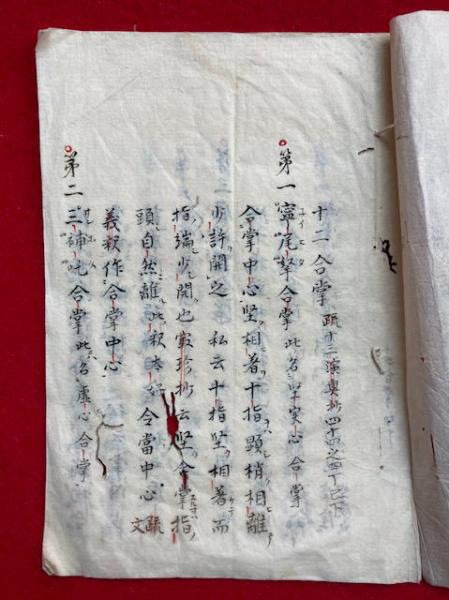 十二合掌 疏十三演奥抄四十四之四丁已下
第一寧尾拏合掌 此名堅実心合掌
合掌中心堅相著十指顕梢相離
少許開之 私云十指堅相著而
指端少開也 宥珍抄云堅合掌指
頭自然離 此釈太好 令當中心 文 疏
義釈作合掌中心
第二三補吒合掌 此名虚心合掌